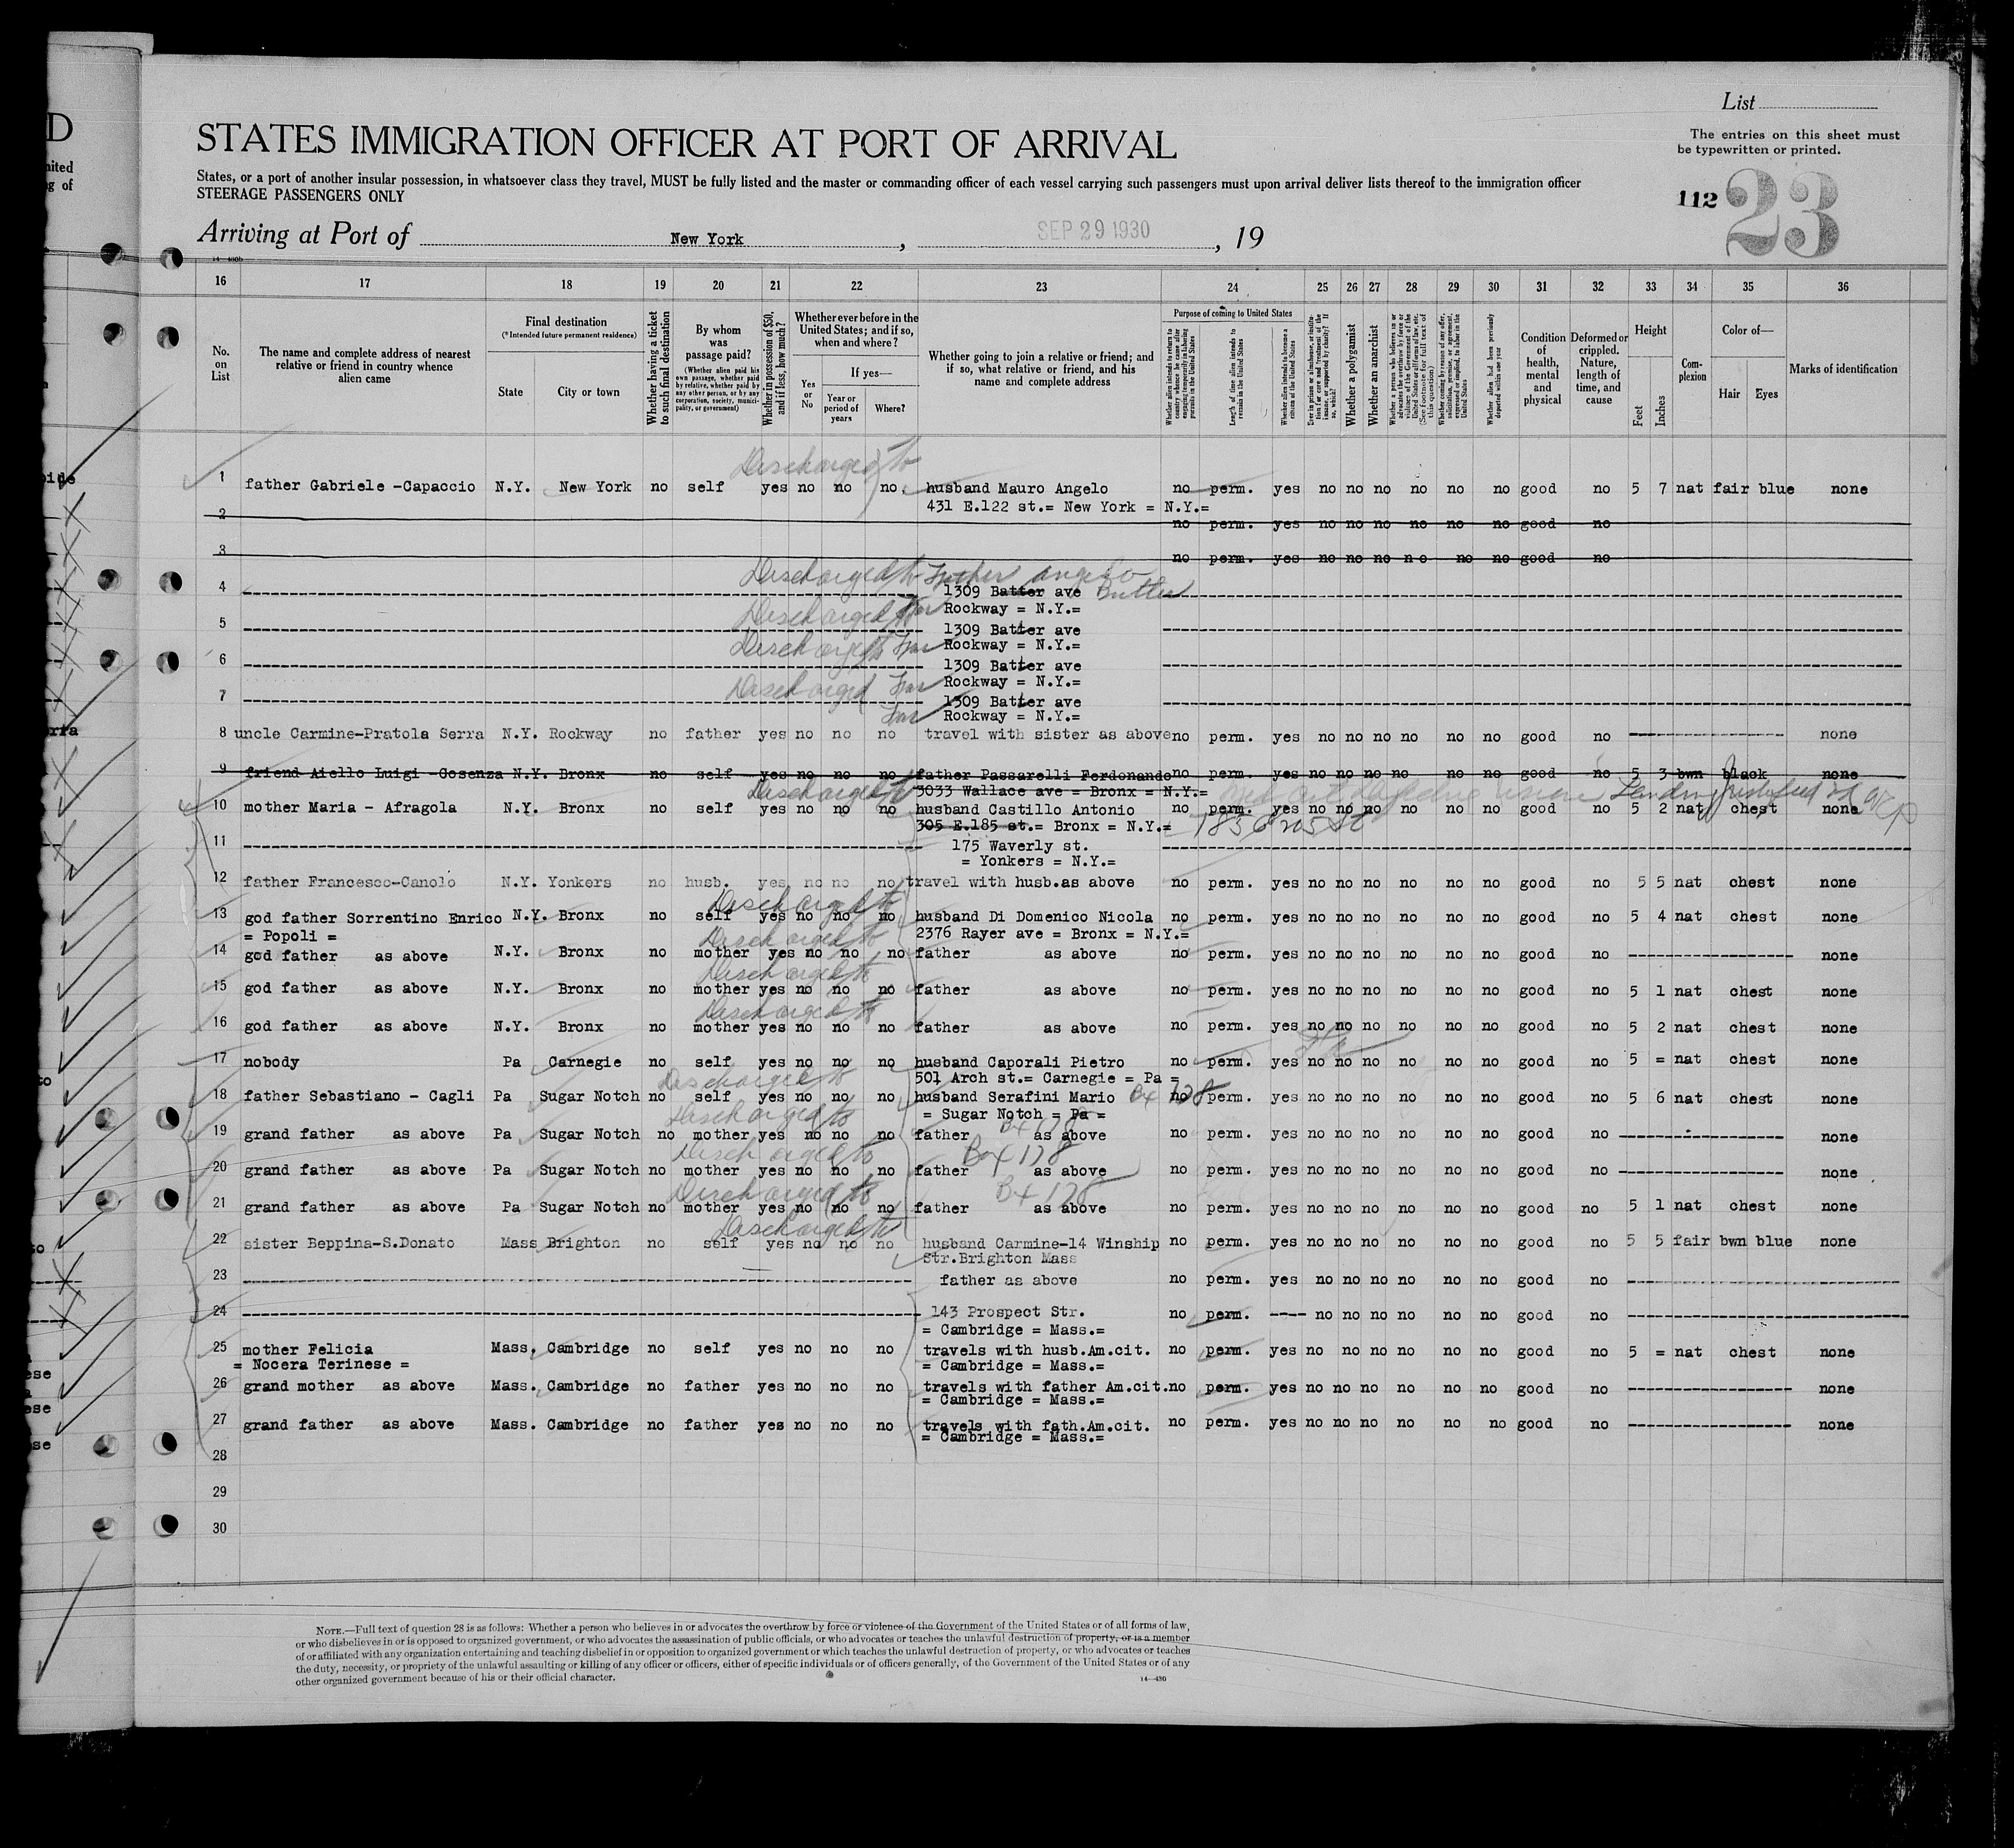 List
STATES IMMIGRATION OFFICER AT PORT OF ARRIVAL
The entries on this sheet must
be typewritten or printed.
States, or a port of another insular possession, in whatsoever class they travel, MUST be fully listed and the master or commanding officer of each vessel carrying such passengers must upon arrival deliver lists thereof to the immigration officer
STEERAGE PASSENGERS ONLY
112 23
Arriving at Port of New York, SEP 29 1930, 19
16 17 18 19 20 21 22 23 24 25 26 27 28 29 30 31 32 33 34 35 36
No. on List
The name and complete address of nearest relative or friend in country whence alien came
Final destination
(*Intended future permanent residence)
State City or town
Whether having a ticket to such final destination
By whom was passage paid?
(Whether alien paid his own passage, whether paid by relative, whether paid by any other person, or by any corporation, society, municipality, or government)
Whether in possession of $50, and if less, how much?
Whether ever before in the United States; and if so, when and where?
Yes or No
If yes—
Year or period of years
Where?
Whether going to join a relative or friend; and if so, what relative or friend, and his name and complete address
Purpose of coming to United States
Whether alien intends to return to country whence he came after engaging temporarily in laboring pursuits in the United States
Length of time alien intends to remain in the United States
Whether alien intends to become a citizen of the United States
Whether a polygamist
Whether an anarchist
Whether alien had been previously deported within one year
Condition of health, mental and physical
Deformed or crippled. Nature, length of time, and cause
Height
Feet Inches
Complexion
Color of—
Hair Eyes
Marks of identification
Discharged to
1 father Gabriele -Capaccio N.Y. New York no self yes no no no. husband Mauro Angelo no perm. yes no no no no no no good no 5 7 nat fair blue none
431 E.122 st.= New York = N.Y.=
2 no perm. yes no no no no no no good no
3 no perm. yes no no no no no no good no
Discharged to Father Angelo
4 1309 Batter ave Butler
Discharged to Far Rockway = N.Y.=
5 1309 Batter ave
Discharged to Far Rockway = N.Y.=
6 1309 Batter ave
Discharged Far Rockway = N.Y.=
7 1309 Batter ave
Far Rockway = N.Y.=
8 uncle Carmine-Pratola Serra N.Y. Rockway no father yes no no no travel with sister as above no perm. yes no no no no no no good no none
9 friend Aiello Luigi -Cosenza N.Y. Bronx no self yes no no no father Passarelli Ferdonando no perm. yes no no no no no no good no 5 3 bwn black none
Discharged to 3033 Wallace ave = Bronx = N.Y.=
10 mother Maria - Afragola N.Y. Bronx no self yes no no no husband Castillo Antonio no perm. yes no no no no no no good no 5 2 nat chest none
305 E.185 st.= Bronx = N.Y.=
11 175 Waverly st.
= Yonkers = N.Y.=
12 father Francesco-Canolo N.Y. Yonkers no husb. yes no no no travel with husb.as above no perm. yes no no no no no no good no 5 5 nat chest none
Discharged to
13 god father Sorrentino Enrico N.Y. Bronx no self yes no no no husband Di Domenico Nicola no perm. yes no no no no no no good no 5 4 nat chest none
= Popoli = Discharged to 2376 Rayer ave = Bronx = N.Y.=
14 god father as above N.Y. Bronx no mother yes no no no father as above no perm. yes no no no no no no good no none
Discharged to
15 god father as above N.Y. Bronx no mother yes no no no father as above no perm. yes no no no no no no good no 5 1 nat chest none
Discharged to
16 god father as above N.Y. Bronx no mother yes no no no father as above no perm. yes no no no no no no good no 5 2 nat chest none
17 nobody Pa Carnegie no self yes no no no husband Caporali Pietro no perm. yes no no no no no no good no 5 = nat chest none
Discharged to 501 Arch st.= Carnegie = Pa =
18 father Sebastiano - Cagli Pa Sugar Notch no self yes no no no husband Serafini Mario Bx 128 no perm. yes no no no no no no good no 5 6 nat chest none
Discharged to = Sugar Notch = Pa =
19 grand father as above Pa Sugar Notch no mother yes no no no father as above no perm. yes no no no no no no good no none
Discharged to Box 128
20 grand father as above Pa Sugar Notch no mother yes no no no father as above no perm. yes no no no no no no good no none
Discharged to Bx 128
21 grand father as above Pa Sugar Notch no mother yes no no no father as above no perm. yes no no no no no no good no 5 1 nat chest none
Discharged to
22 sister Beppina-S.Donato Mass Brighton no self yes no no no husband Carmine-14 Winship no perm. yes no no no no no no good no 5 5 fair bwn blue none
Str.Brighton Mass
23 father as above no perm. yes no no no no no no good no
24 143 Prospect Str. no perm. ---- no no no no no no good no
= Cambridge = Mass.=
25 mother Felicia Mass. Cambridge no self yes no no no travels with husb.Am.cit. no perm. yes no no no no no no good no 5 = nat chest none
= Nocera Terinese = = Cambridge = Mass.=
26 grand mother as above Mass. Cambridge no father yes no no no travels with father Am.cit. no perm. yes no no no no no no good no none
= Cambridge = Mass.=
27 grand father as above Mass. Cambridge no father yes no no no travels with fath.Am.cit. no perm. yes no no no no no no good no none
= Cambridge = Mass.=
28
29
30
NOTE.—Full text of question 28 is as follows: Whether a person who believes in or advocates the overthrow by force or violence of the Government of the United States or of all forms of law,
or who disbelieves in or is opposed to organized government, or who advocates the assassination of public officials, or who advocates or teaches the unlawful destruction of property, or is a member
of or affiliated with any organization entertaining and teaching disbelief in or opposition to organized government or which teaches the unlawful destruction of property, or who advocates or teaches
the duty, necessity, or propriety of the unlawful assaulting or killing of any officer or officers, either of specific individuals or of officers generally, of the Government of the United States or of any
other organized government because of his or their official character.
14—430